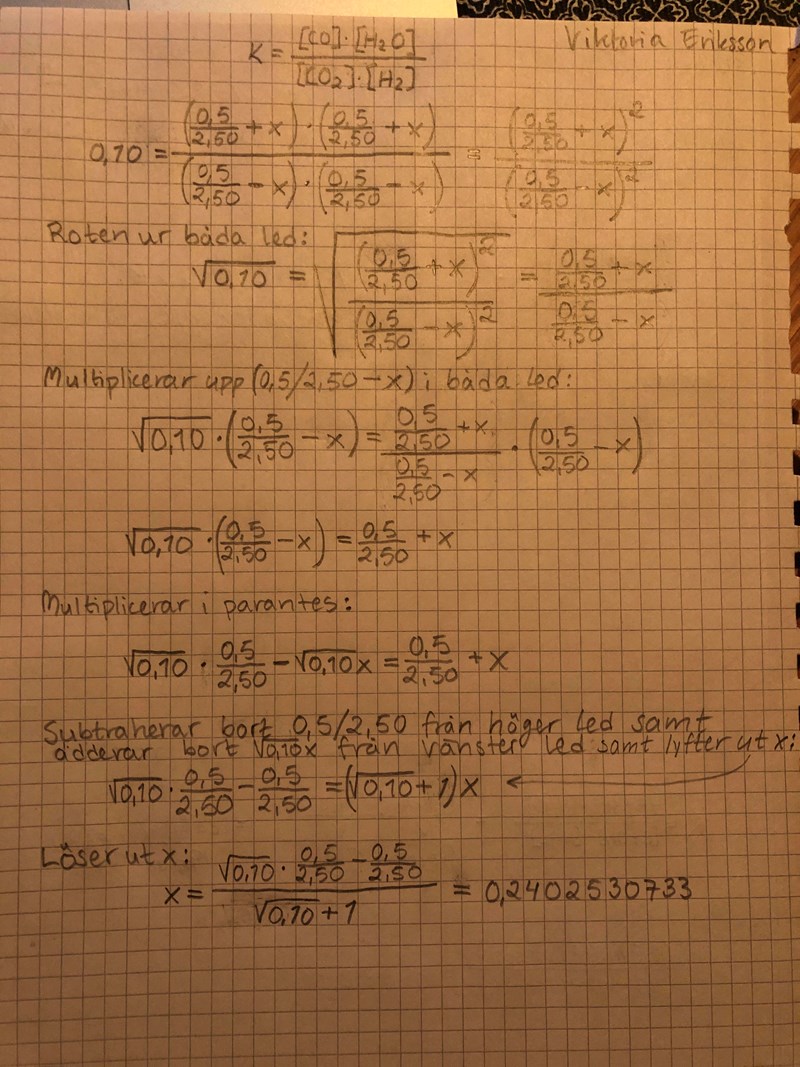 K = [CO]·[H₂O] / [CO₂]·[H₂]
Viktoria Eriksson
0,10 = (0,5/2,50 + x)·(0,5/2,50 + x) / (0,5/2,50 - x)·(0,5/2,50 - x) = (0,5/2,50 + x)² / (0,5/2,50 - x)²
Roten ur båda led:
√0,10 = √((0,5/2,50 + x)² / (0,5/2,50 - x)²) = (0,5/2,50 + x) / (0,5/2,50 - x)
Multiplicerar upp (0,5/2,50 - x) i båda led:
√0,10 · (0,5/2,50 - x) = (0,5/2,50 + x) / (0,5/2,50 - x) · (0,5/2,50 - x)
√0,10 · (0,5/2,50 - x) = 0,5/2,50 + x
Multiplicerar i parantes:
√0,10 · 0,5/2,50 - √0,10x = 0,5/2,50 + x
Subtraherar bort 0,5/2,50 från höger led samt
adderar bort √0,10x från vänster led samt lyfter ut x:
√0,10 · 0,5/2,50 - 0,5/2,50 = (√0,10 + 1)x
Löser ut x:
x = (√0,10 · 0,5/2,50 - 0,5/2,50) / (√0,10 + 1) = 0,2402530733